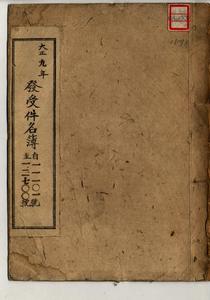 大正九年
發受件名簿
自一一一〇一號
至一二七〇〇號